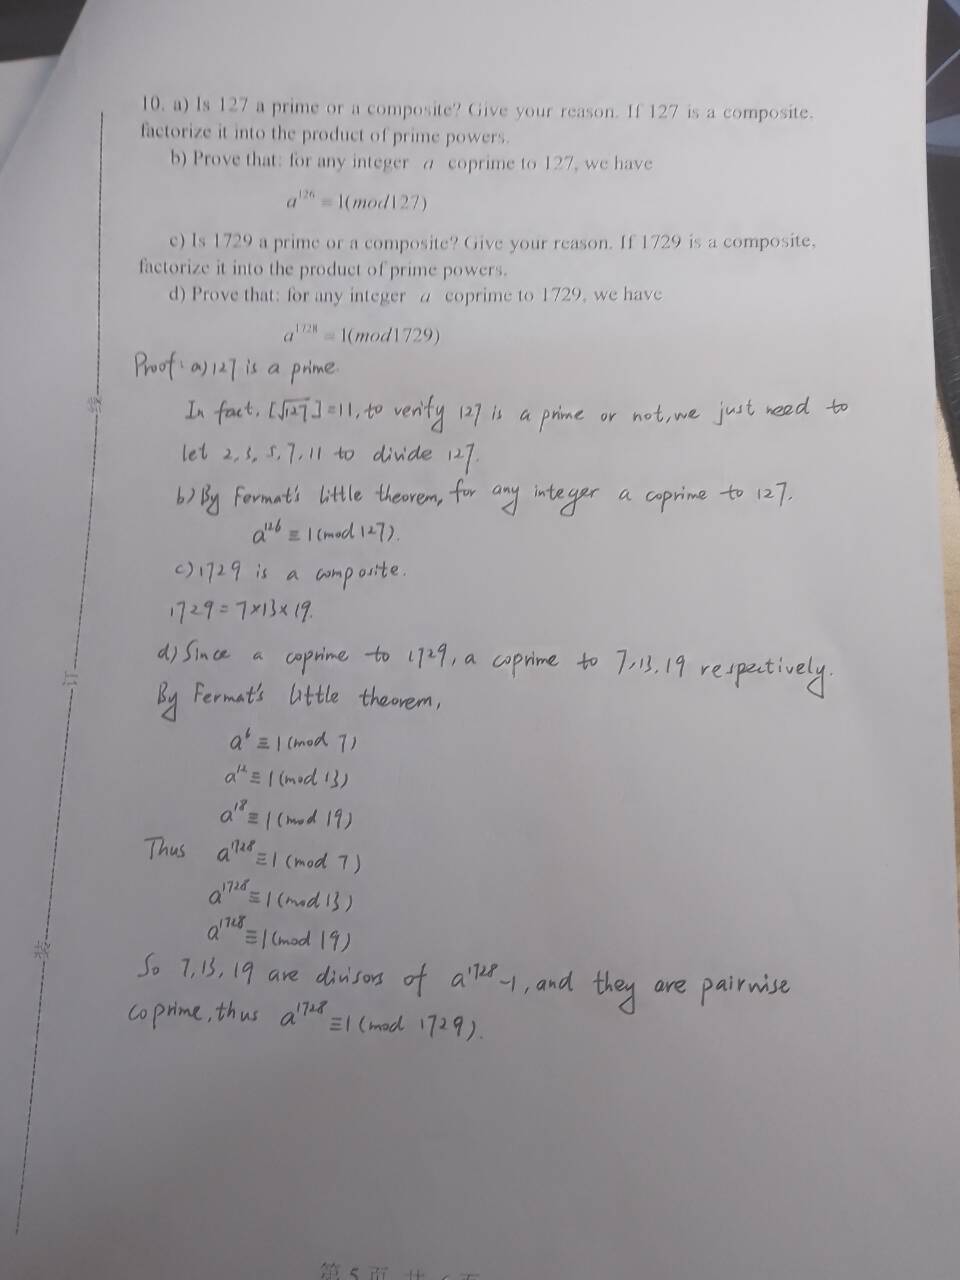 10. a) Is 127 a prime or a composite? Give your reason. If 127 is a composite,
factorize it into the product of prime powers.
b) Prove that: for any integer a coprime to 127, we have
a¹²⁶ ≡ 1(mod127)
c) Is 1729 a prime or a composite? Give your reason. If 1729 is a composite,
factorize it into the product of prime powers.
d) Prove that: for any integer a coprime to 1729, we have
a¹⁷²⁸ ≡ 1(mod1729)
Proof: a) 127 is a prime.
In fact, [√127] = 11, to verify 127 is a prime or not, we just need to
let 2, 3, 5, 7, 11 to divide 127.
b) By Fermat's little theorem, for any integer a coprime to 127,
a¹²⁶ ≡ 1 (mod 127).
c) 1729 is a composite.
1729 = 7×13×19.
d) Since a coprime to 1729, a coprime to 7, 13, 19 respectively.
By Fermat's little theorem,
a⁶ ≡ 1 (mod 7)
a¹² ≡ 1 (mod 13)
a¹⁸ ≡ 1 (mod 19)
Thus a¹⁷²⁸ ≡ 1 (mod 7)
a¹⁷²⁸ ≡ 1 (mod 13)
a¹⁷²⁸ ≡ 1 (mod 19)
So 7, 13, 19 are divisors of a¹⁷²⁸-1, and they are pairwise
coprime, thus a¹⁷²⁸ ≡ 1 (mod 1729).
线
订
装
第 5 页 共